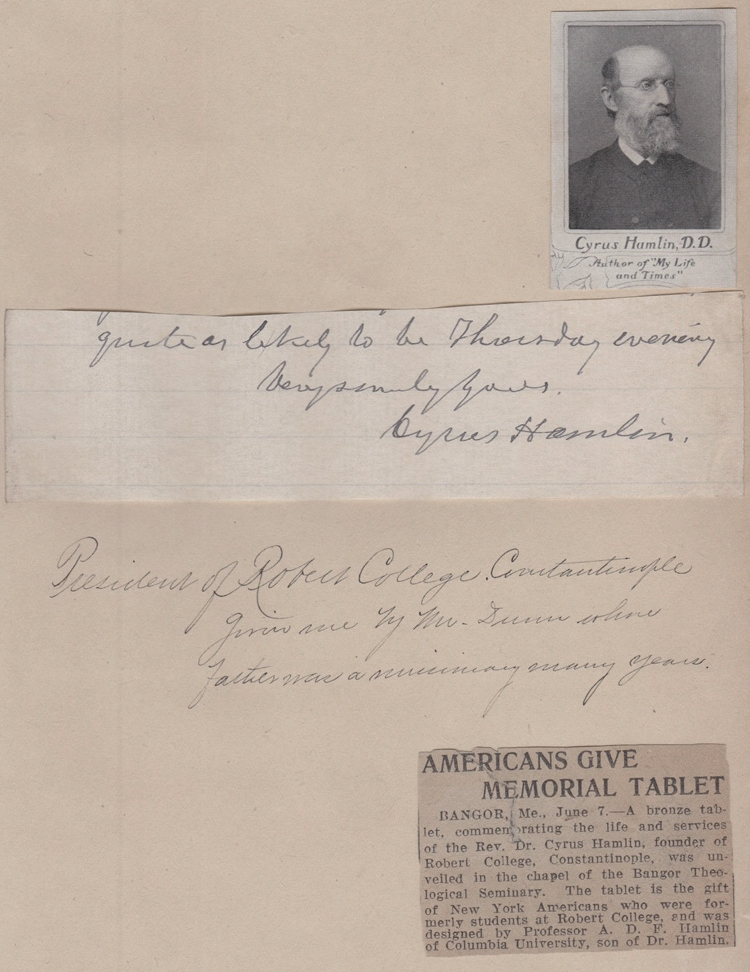 Cyrus Hamlin, D.D.
Author of "My Life
and Times"
quite as likely to be Thursday evening
Very truly yours.
Cyrus Hamlin.
President of Robert College. Constantinople
Given me by Mr. Dunn whose
father was a missionary many years.
AMERICANS GIVE
MEMORIAL TABLET
BANGOR, Me., June 7.—A bronze tab-
let, commemorating the life and services
of the Rev. Dr. Cyrus Hamlin, founder of
Robert College, Constantinople, was un-
veiled in the chapel of the Bangor Theo-
logical Seminary. The tablet is the gift
of New York Americans who were for-
merly students at Robert College, and was
designed by Professor A. D. F. Hamlin
of Columbia University, son of Dr. Hamlin.